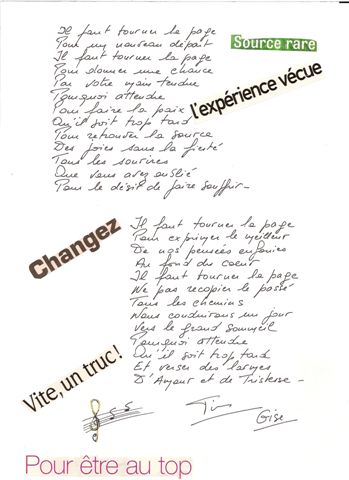 Il faut tourner la page
Pour un nouveau départ
Il faut tourner la page
Pour donner une chance
Par votre main tendue
Pourquoi attendre
Pour faire la paix
Qu'il soit trop tard
Pour retrouver la source
Des joies sans la fierté
Tous les sourires
Que vous avez oublié
Pour le désir de faire souffrir_
Source rare
l'expérience vécue
Changez
Il faut tourner la page
Pour exprimer le meilleur
De nos pensées enfouies
Au fond du coeur
Il faut tourner la page
Ne pas recopier le passé
Tous les chemins
Nous conduirons un jour
Vers le grand sommeil
Pourquoi attendre
Qu'il soit trop tard
Et verser des larmes
D'Amour et de Tristesse_
Vite, un truc!
Gise
Pour être au top